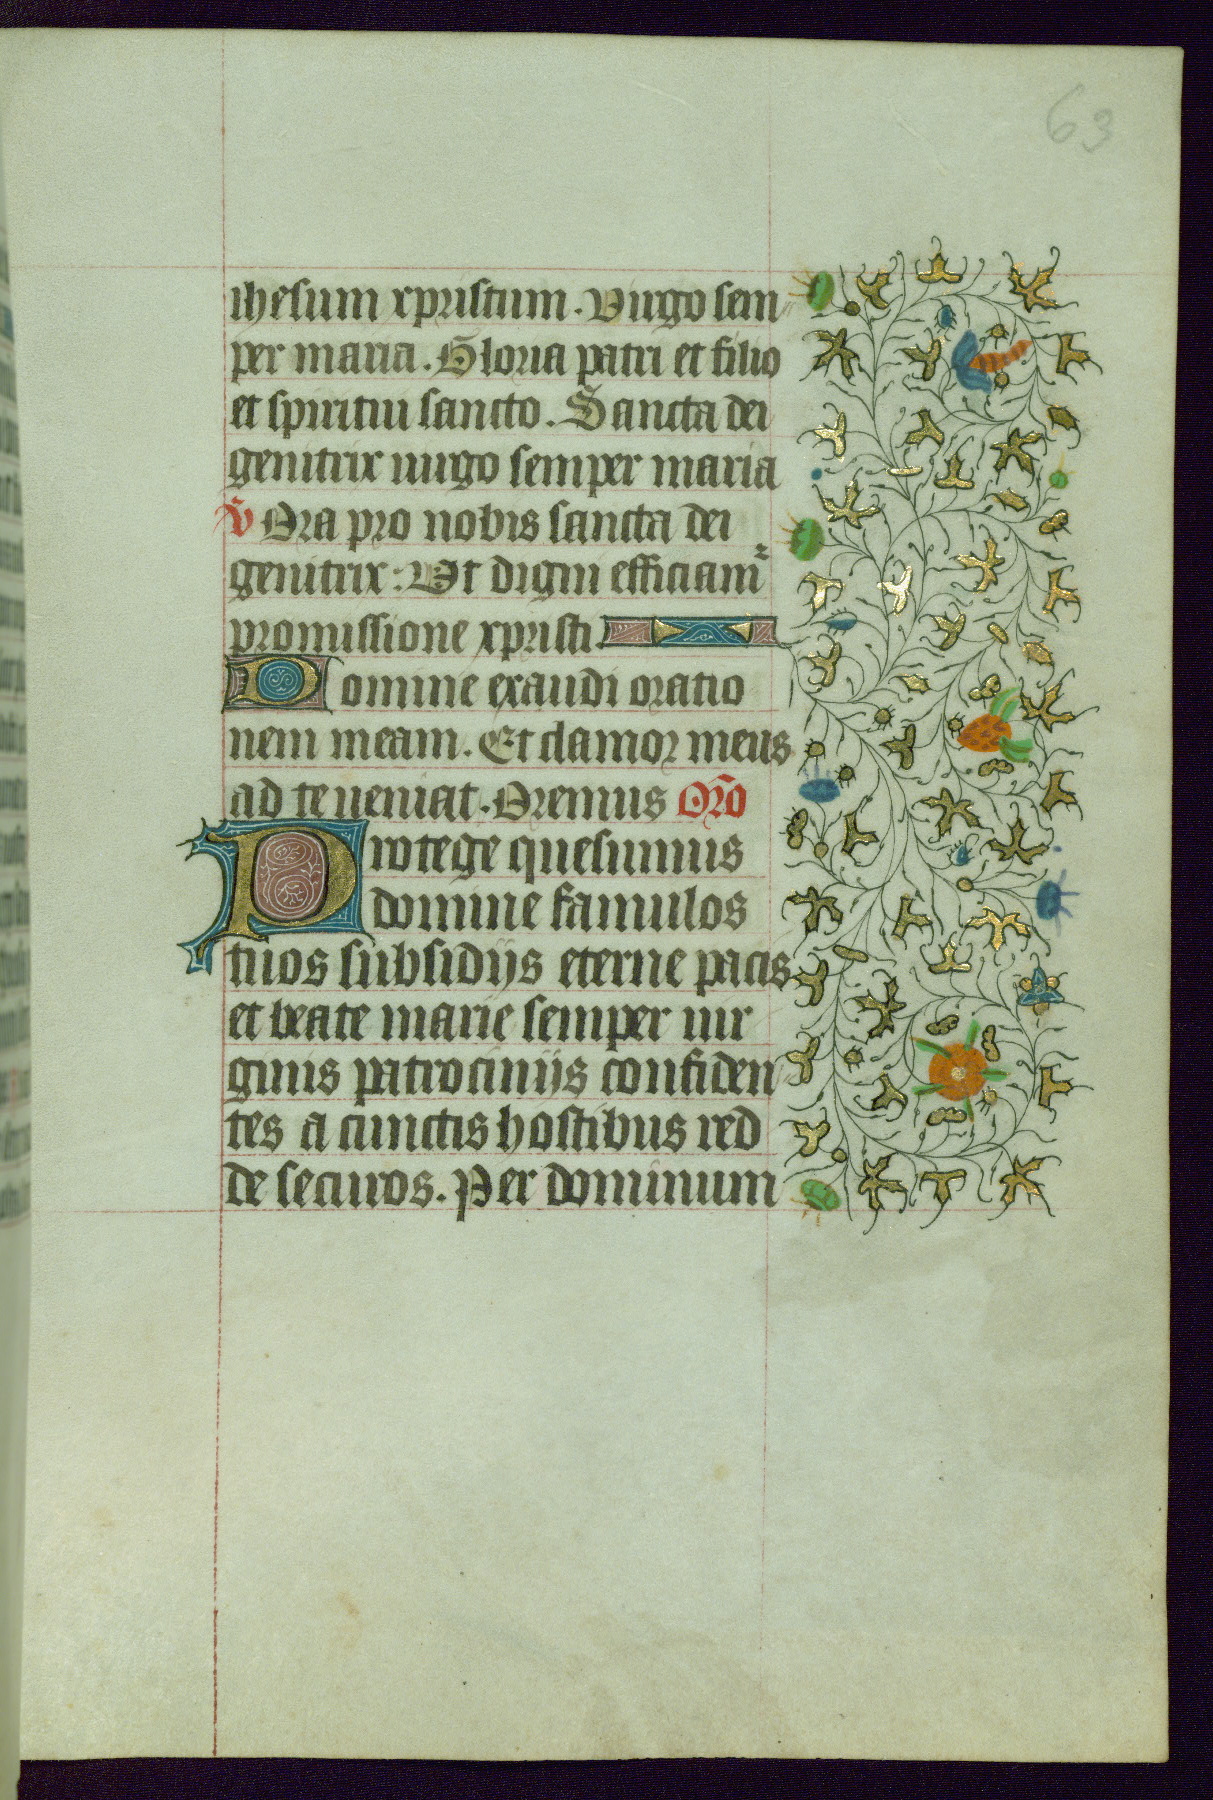 63
ihesum xpristum. Uirgo sem
per maria. Gloria patri et filio
et spiritui sancto. Sancta dei
genitrix uirgo semper maria
V Ora pro nobis sancta dei
genitrix: Ut digni efficiam²
promissione xpristi.
Domine exaudi oratio
nem meam. Et clamor meus
ad te ueniat. Oremus Oro
Protege quesumus
domine famulos
tuos subsidijs eterne pacis
et beate marie semper uir
ginis patrocinijs confiden
tes a cunctis hostibus red
de securos. Per dominum